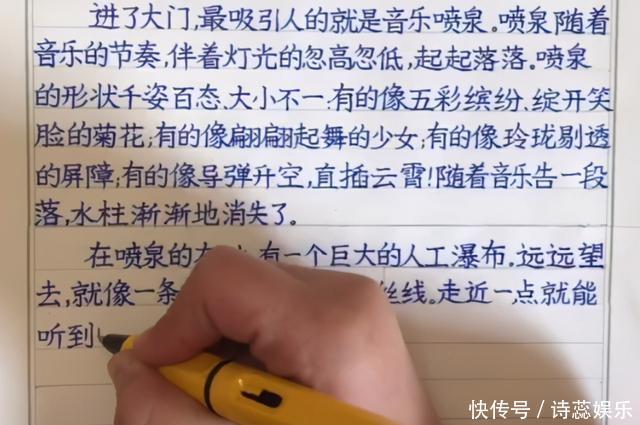 进了大门,最吸引人的就是音乐喷泉.喷泉随着
音乐的节奏,伴着灯光的忽高忽低,起起落落.喷泉
的形状千姿百态.大小不一.有的像五彩缤纷.绽开笑
脸的菊花;有的像翩翩起舞的少女;有的像玲珑剔透
的屏障;有的像导弹升空,直插云霄!随着音乐告一段
落,水柱渐渐地消失了。
在喷泉的 有一个巨大的人工瀑布.远远望
去,就像一条 丝线。走近一点就能
听到
快传号/诗蕊娱乐